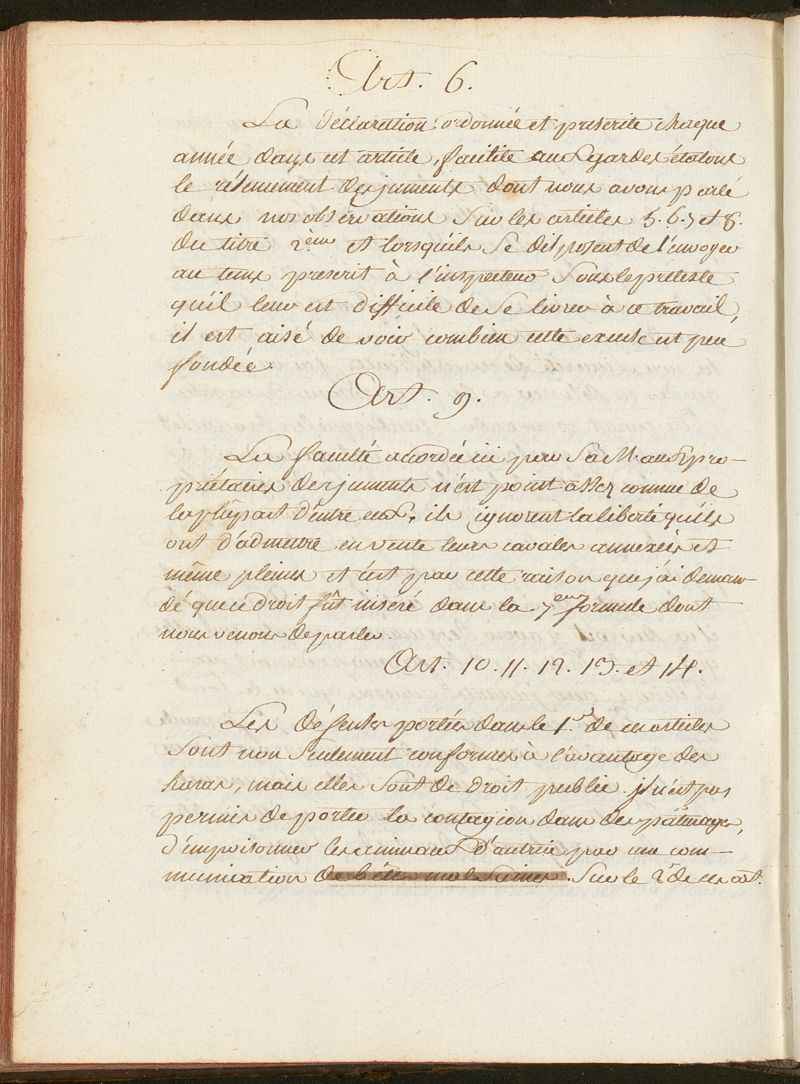 Art. 6.
La déclaration ordonnée et prescrite chaque
année dans cet article, facilite aux gardes étalons
le résencement des juments dont nous avons parlé
dans nos observations sur les articles 5. 6. 7 et 8.
du titre 2ème et lorsqu'ils se dispensent de l'envoyer
au tems prescrit à l'inspecteur sous le prétexte
quil leur est difficile de se livrer à ce travail,
il est aisé de voir combien cette excuse est peu
fondée.
Art. 9.
La faculté accordée ici par Sa M. aux pro-
priétaires des juments n'est point assez connue de
la plûpart d'entre eux, ils ignorent la liberté qu'ils
ont d'admettre en vente leurs cavales annexées et
même pleines et c'est par cette raison que j'ai deman-
dé que ce Droit fût inséré dans la 7eme formule dont
nous venons de parler.
Art. 10. 11. 12. 13. et 14.
Les défenses portées dans le 1er de ces articles
sont non seulement conformes à l'avantage des
haras, mais elles sont de droit public. il n'est pas
permis de porter la contagion dans des pâturages,
d'empoisonner les animaux d'autrui par une com-
munication de bêtes mal saines. Sur le 2d de ces art.